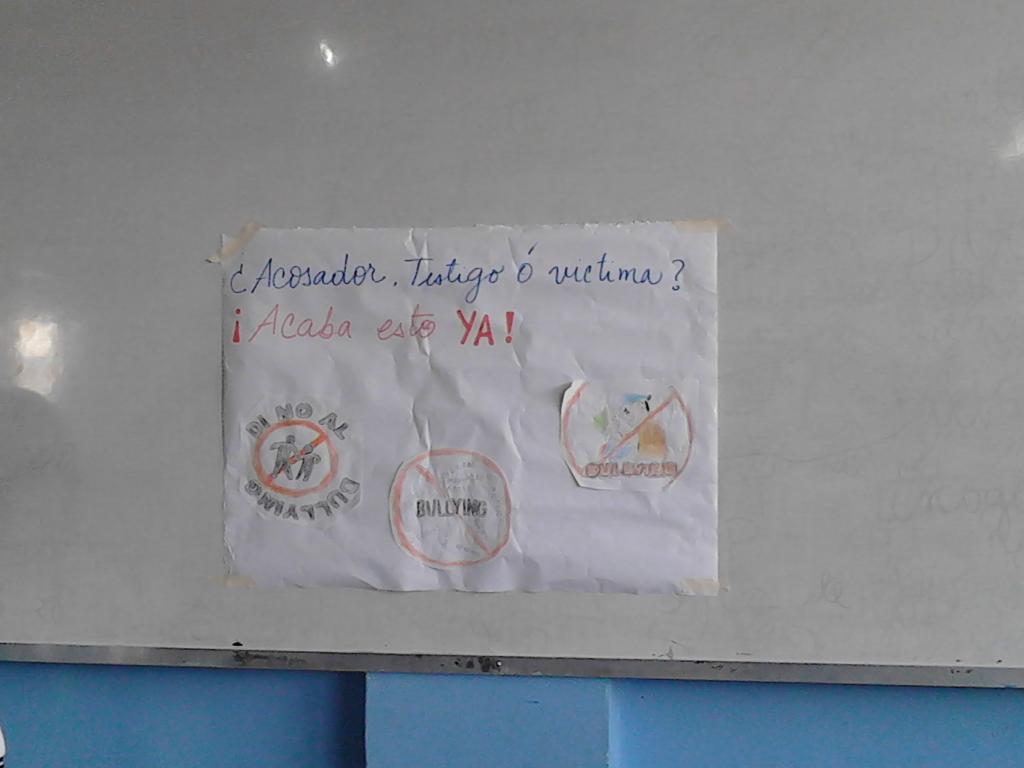 ¿Acosador, Testigo ó victima?
¡Acaba esto YA!
DI NO AL
BULLYING
BULLYING
BULLYING